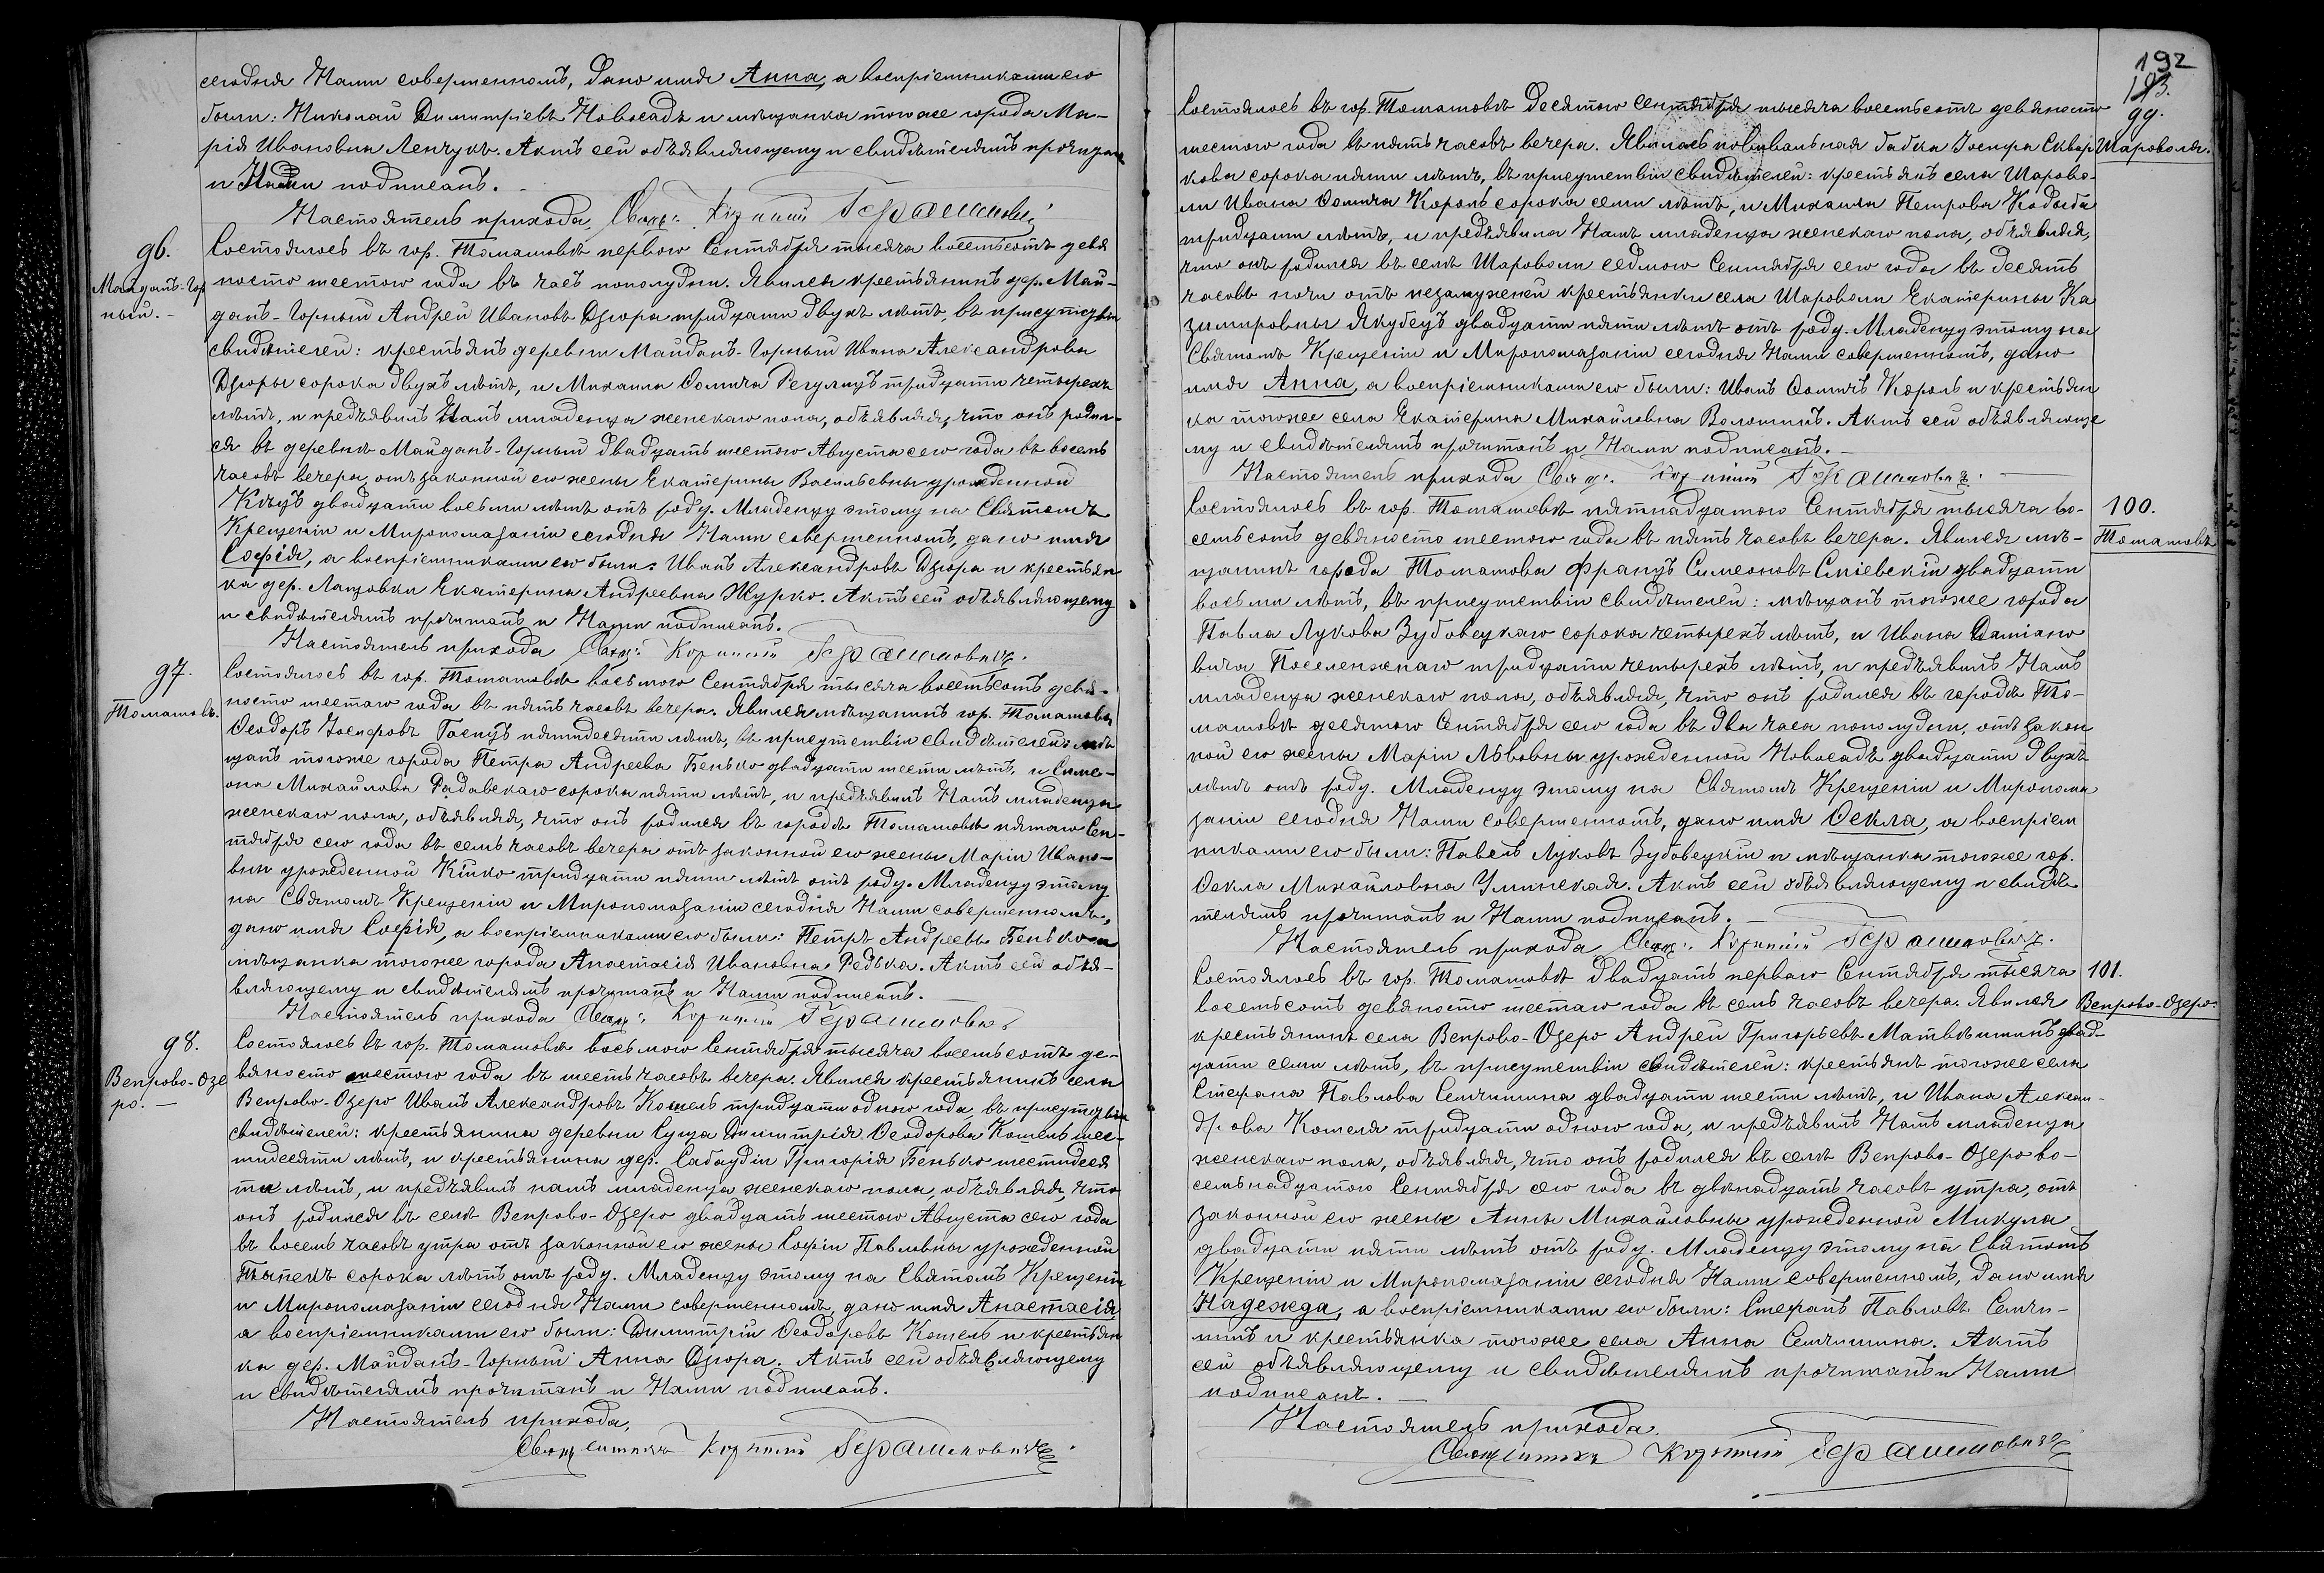 сегодня Нами совершенномъ, дано имя Анна, а воспріемниками его
были: Николай Димитріевъ Новосадъ и мѣщанка того же города Ма-
рія Ивановна Ленчукъ. Актъ сей объявляющему и свидѣтелямъ прочитанъ
и Нами подписанъ.
Настоятель прихода, Свящ:
96.
Майданъ-Гор
ный.
Состоялось въ гор. Томашовѣ перваго Сентября тысяча восемьсотъ девя
носто шестого года въ часъ пополудни. Явился крестьянинъ дер. Май-
данъ-Горный Андрей Ивановъ Дзюра тридцати двухъ лѣтъ, въ присутствіи
свидѣтелей: крестьянъ деревни Майданъ-Горный Ивана Александрова
Дзюры сорока двухъ лѣтъ, и Михаила Ѳомича тридцати четырехъ
лѣтъ, и предъявилъ Намъ младенца женскаго пола, объявляя, что онъ родил-
ся въ деревнѣ Майданъ-Горный двадцать шестого Августа сего года въ восемь
часовъ вечера, отъ законной его жены Екатерины Васильевны урожденной
двадцати восьми лѣтъ отъ роду. Младенцу этому на Святомъ
Крещеніи и Миропомазаніи сегодня Нами совершенномъ, дано имя
Софія, а воспріемниками его были: Иванъ Александровъ Дзюра и крестьян
ка дер. Лащовки Екатерина Андреевна Журко. Актъ сей объявляющему
и свидѣтелямъ прочитанъ и Нами подписанъ.
Настоятель прихода Свящ: Герасимовичъ.
97.
Томашовъ.
Состоялось въ гор. Томашовѣ восьмого Сентября тысяча восемьсотъ девя-
носто шестаго года въ пять часовъ вечера. Явился мѣщанинъ гор. Томашова
Ѳеодоръ Іосифовъ пятидесяти лѣтъ, въ присутствіи свидѣтелей: мѣ
щанъ того же города Петра Андреева Бенько двадцати шести лѣтъ, и Симе-
она Михайлова Радовскаго сорока пяти лѣтъ, и предъявилъ Намъ младенца
женскаго пола, объявляя, что онъ родился въ городѣ Томашовѣ пятаго Сен-
тября сего года въ семь часовъ вечера отъ законной его жены Маріи Ивано-
вны урожденной Кішко тридцати пяти лѣтъ отъ роду. Младенцу этому
на Святомъ Крещеніи и Миропомазаніи сегодня Нами совершенномъ,
дано имя Софія, а воспріемниками его были: Петръ Андреевъ Бенько и
мѣщанка того же города Анастасія Ивановна Редька. Актъ сей объя-
вляющему и свидѣтелямъ прочитанъ и Нами подписанъ.
Настоятель прихода Свящ: Герасимовичъ
98.
Вепрово-Озе
ро.
Состоялось въ гор. Томашовѣ восьмого Сентября тысяча восемьсотъ де-
вяносто шестого года въ шесть часовъ вечера. Явился крестьянинъ села
Вепрово-Озеро Иванъ Александровъ Кошель тридцати одного года, въ присутствіи
свидѣтелей: крестьянина деревни Димитрія Ѳеодорова Кошель шес-
тидесяти лѣтъ, и крестьянина дер. Сабаудіи Григорія Бенько шестидеся
ти лѣтъ, и предъявилъ намъ младенца женскаго пола, объявляя, что
онъ родился въ селѣ Вепрово-Озеро двадцать шестого Августа сего года
въ восемь часовъ утра отъ законной его жены Софіи Павловны урожденной
сорока лѣтъ отъ роду. Младенцу этому на Святомъ Крещеніи
и Миропомазаніи сегодня Нами совершенномъ, дано имя Анастасія,
а воспріемниками его были: Димитрій Ѳеодоровъ Кошель и крестьян
ка дер. Майданъ-Горный Анна Дзюра. Актъ сей объявляющему
и свидѣтелямъ прочитанъ и Нами подписанъ.
Настоятель прихода,
Священникъ Герасимовичъ.
192
193.
99.
Шароволя.
Состоялось въ гор. Томашовѣ десятого Сентября тысяча восемьсотъ девяносто
шестого года въ пять часовъ вечера. Явилась повивальная бабка Іосифа Сквар
кова сорока пяти лѣтъ, въ присутствіи свидѣтелей: крестьянъ села Шарово-
ли Ивана Ѳомича Король сорока семи лѣтъ, и Михаила Петрова
тридцати лѣтъ, и предъявила Намъ младенца женскаго пола, объявляя,
что онъ родился въ селѣ Шароволи седмого Сентября сего года въ десять
часовъ ночи отъ незамужней крестьянки села Шароволи Екатерины Ка
зимировны Якубецъ двадцати пяти лѣтъ отъ роду. Младенцу этому на
Святомъ Крещеніи и Миропомазаніи сегодня Нами совершенномъ, дано
имя Анна, а воспріемниками его были: Иванъ Ѳомичъ Король и крестьян
ка того же села Екатерина Михайловна Волошинъ. Актъ сей объявляюще
му и свидѣтелямъ прочитанъ и Нами подписанъ.
Настоятель прихода Свящ. Герасимовичъ.
100.
Томашовъ
Состоялось въ гор. Томашовѣ пятнадцатого Сентября тысяча во-
семьсотъ девяносто шестого года въ пять часовъ вечера. Явился мѣ-
щанинъ города Томашова Францъ Симеоновъ Сміевскій двадцати
восьми лѣтъ, въ присутствіи свидѣтелей: мѣщанъ того же города
Павла Лукова Зубовецкаго сорока четырехъ лѣтъ, и Ивана Даміано
вича тридцати четырехъ лѣтъ, и предъявилъ Намъ
младенца женскаго пола, объявляя, что онъ родился въ городѣ То-
машовѣ десятого Сентября сего года въ два часа пополудни, отъ закон
ной его жены Маріи Львовны урожденной Новосадъ двадцати двухъ
лѣтъ отъ роду. Младенцу этому на Святомъ Крещеніи и Миропома
заніи сегодня Нами совершенномъ, дано имя Ѳекла, а воспріем
никами его были: Павелъ Луковъ Зубовецкій и мѣщанка того же гор.
Ѳекла Михайловна Уминская. Актъ сей объявляющему и свидѣ
телямъ прочитанъ и Нами подписанъ.
Настоятель прихода, Свящ: Герасимовичъ.
101.
Вепрово-Озеро.
Состоялось въ гор. Томашовѣ двадцать перваго Сентября тысяча
восемьсотъ девяносто шестаго года въ семь часовъ вечера. Явился
крестьянинъ села Вепрово-Озеро Андрей Григорьевъ Матвѣишинъ двад-
цати семи лѣтъ, въ присутствіи свидѣтелей: крестьянъ того же села
Стефана Павлова Семчишина двадцати шести лѣтъ, и Ивана Алексан-
дрова Кошеля тридцати одного года, и предъявилъ Намъ младенца
женскаго пола, объявляя, что онъ родился въ селѣ Вепрово-Озеро во-
семьнадцатого Сентября сего года въ двѣнадцать часовъ утра, отъ
законной его жены Анны Михайловны урожденной Микула
двадцати пяти лѣтъ отъ роду. Младенцу этому на Святомъ
Крещеніи и Миропомазаніи сегодня Нами совершенномъ, дано имя
Надежда, а воспріемниками его были: Стефанъ Павловъ Семчи-
шинъ и крестьянка того же села Анна Семчишина. Актъ
сей объявляющему и свидѣтелямъ прочитанъ и Нами
подписанъ.
Настоятель прихода.
Священникъ Герасимовичъ